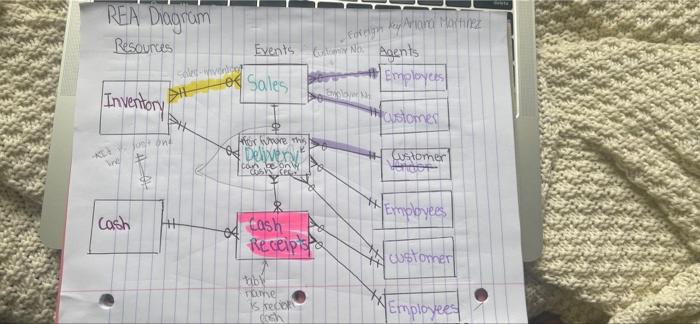 REA Diagram
Foreign key Ariana Martinez
Resources
Events
Customer No.
Agents
Sales-inventory
Sales
Employees
Employee No
Inventory
Customer
For future this
Delivery
can be only
cash rec.
Customer
Vendor
just one
line
Employees
Cash
Cash
Receipts
customer
table
name
is receive
cash
Employees